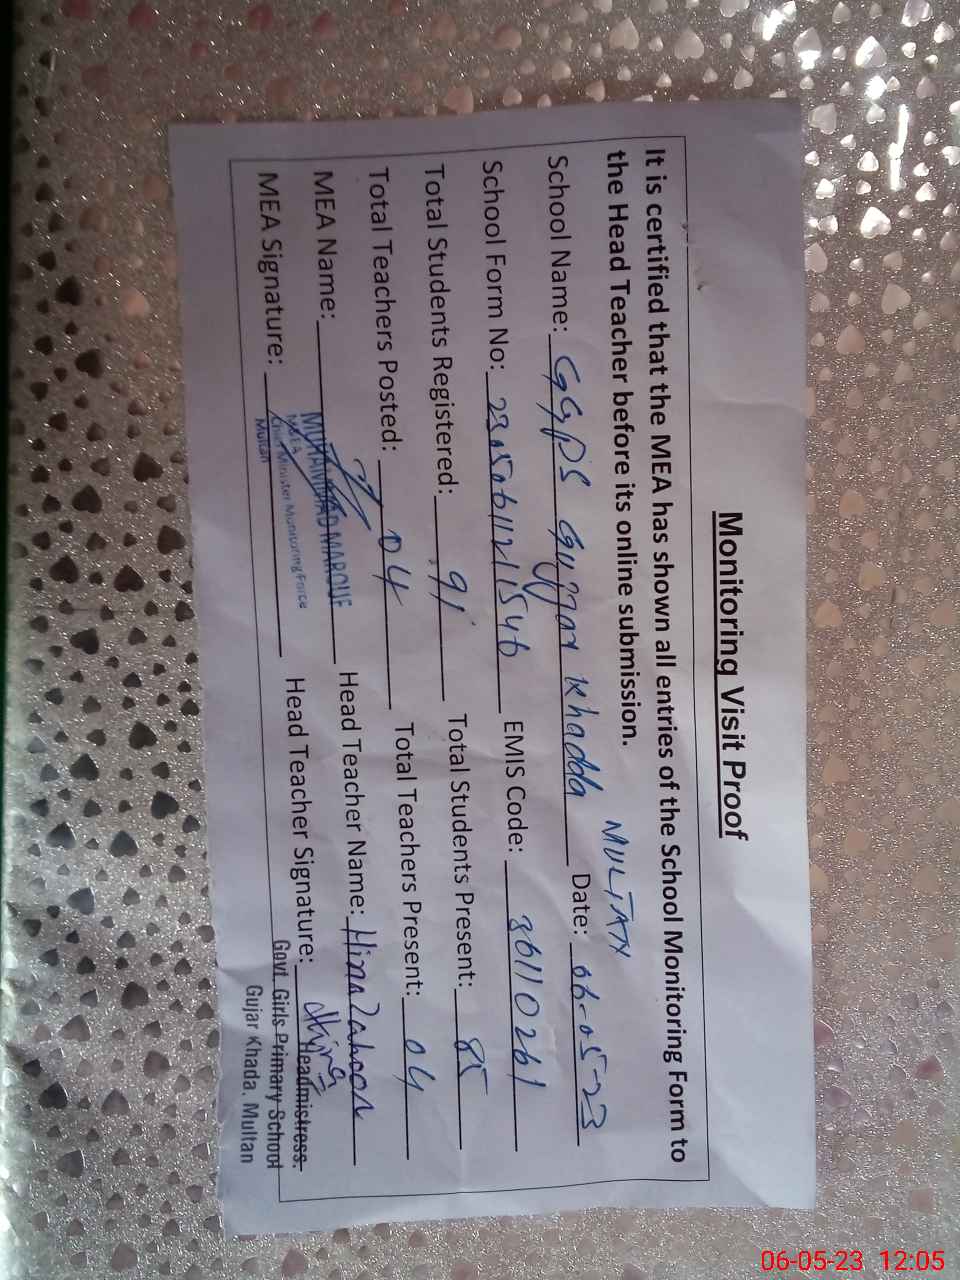 Monitoring Visit Proof
It is certified that the MEA has shown all entries of the School Monitoring Form to
the Head Teacher before its online submission.
MULTAN
School Name: GGPS Gujjar Khadda Date: 06-05-23
School Form No: 23050611211546 EMIS Code: 36110261
Total Students Registered: 91 Total Students Present: 85
Total Teachers Posted: 04 Total Teachers Present: 04
MEA Name: MUHAMMAD MAROUF Head Teacher Name: Hina Zahoor
MEA Signature: Head Teacher Signature: Hina
M.E.A
Chief Minister Monitoring Force
Multan
Headmistress.
Govt. Girls Primary School
Gujar Khada. Multan
06-05-23 12:05